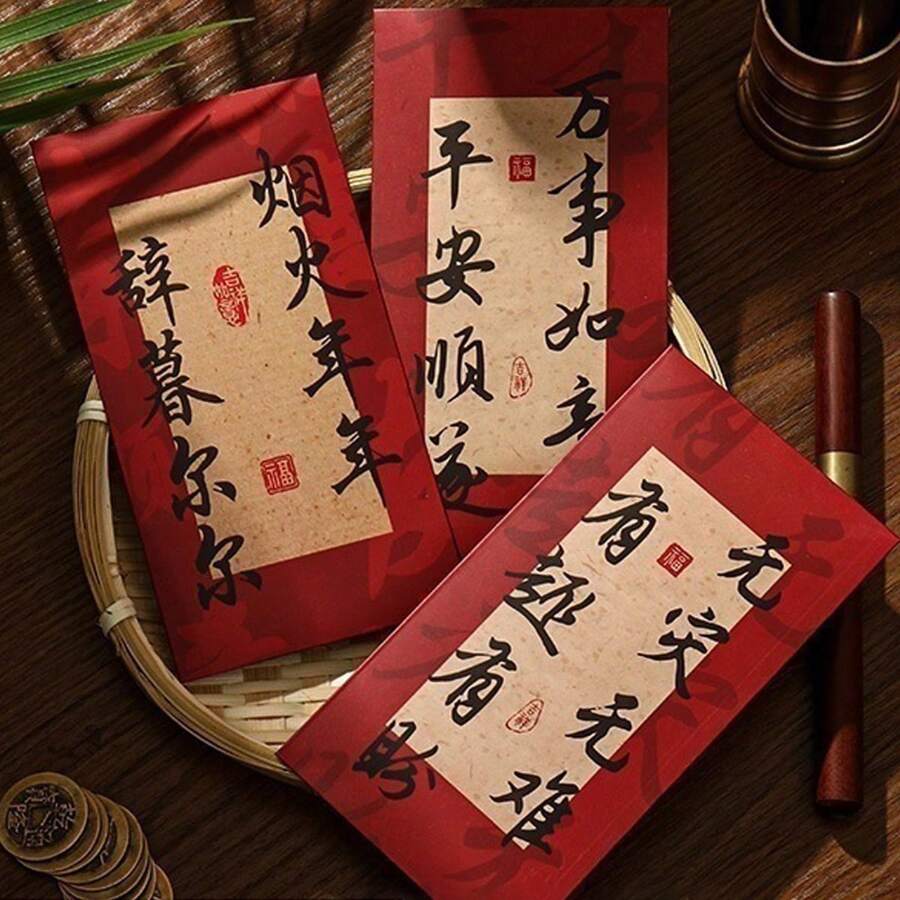 烟火年年
辞暮尔尔
吉祥如意
福
万事如意
平安順遂
福
吉祥
无灾无难
有趣有盼
福
吉祥